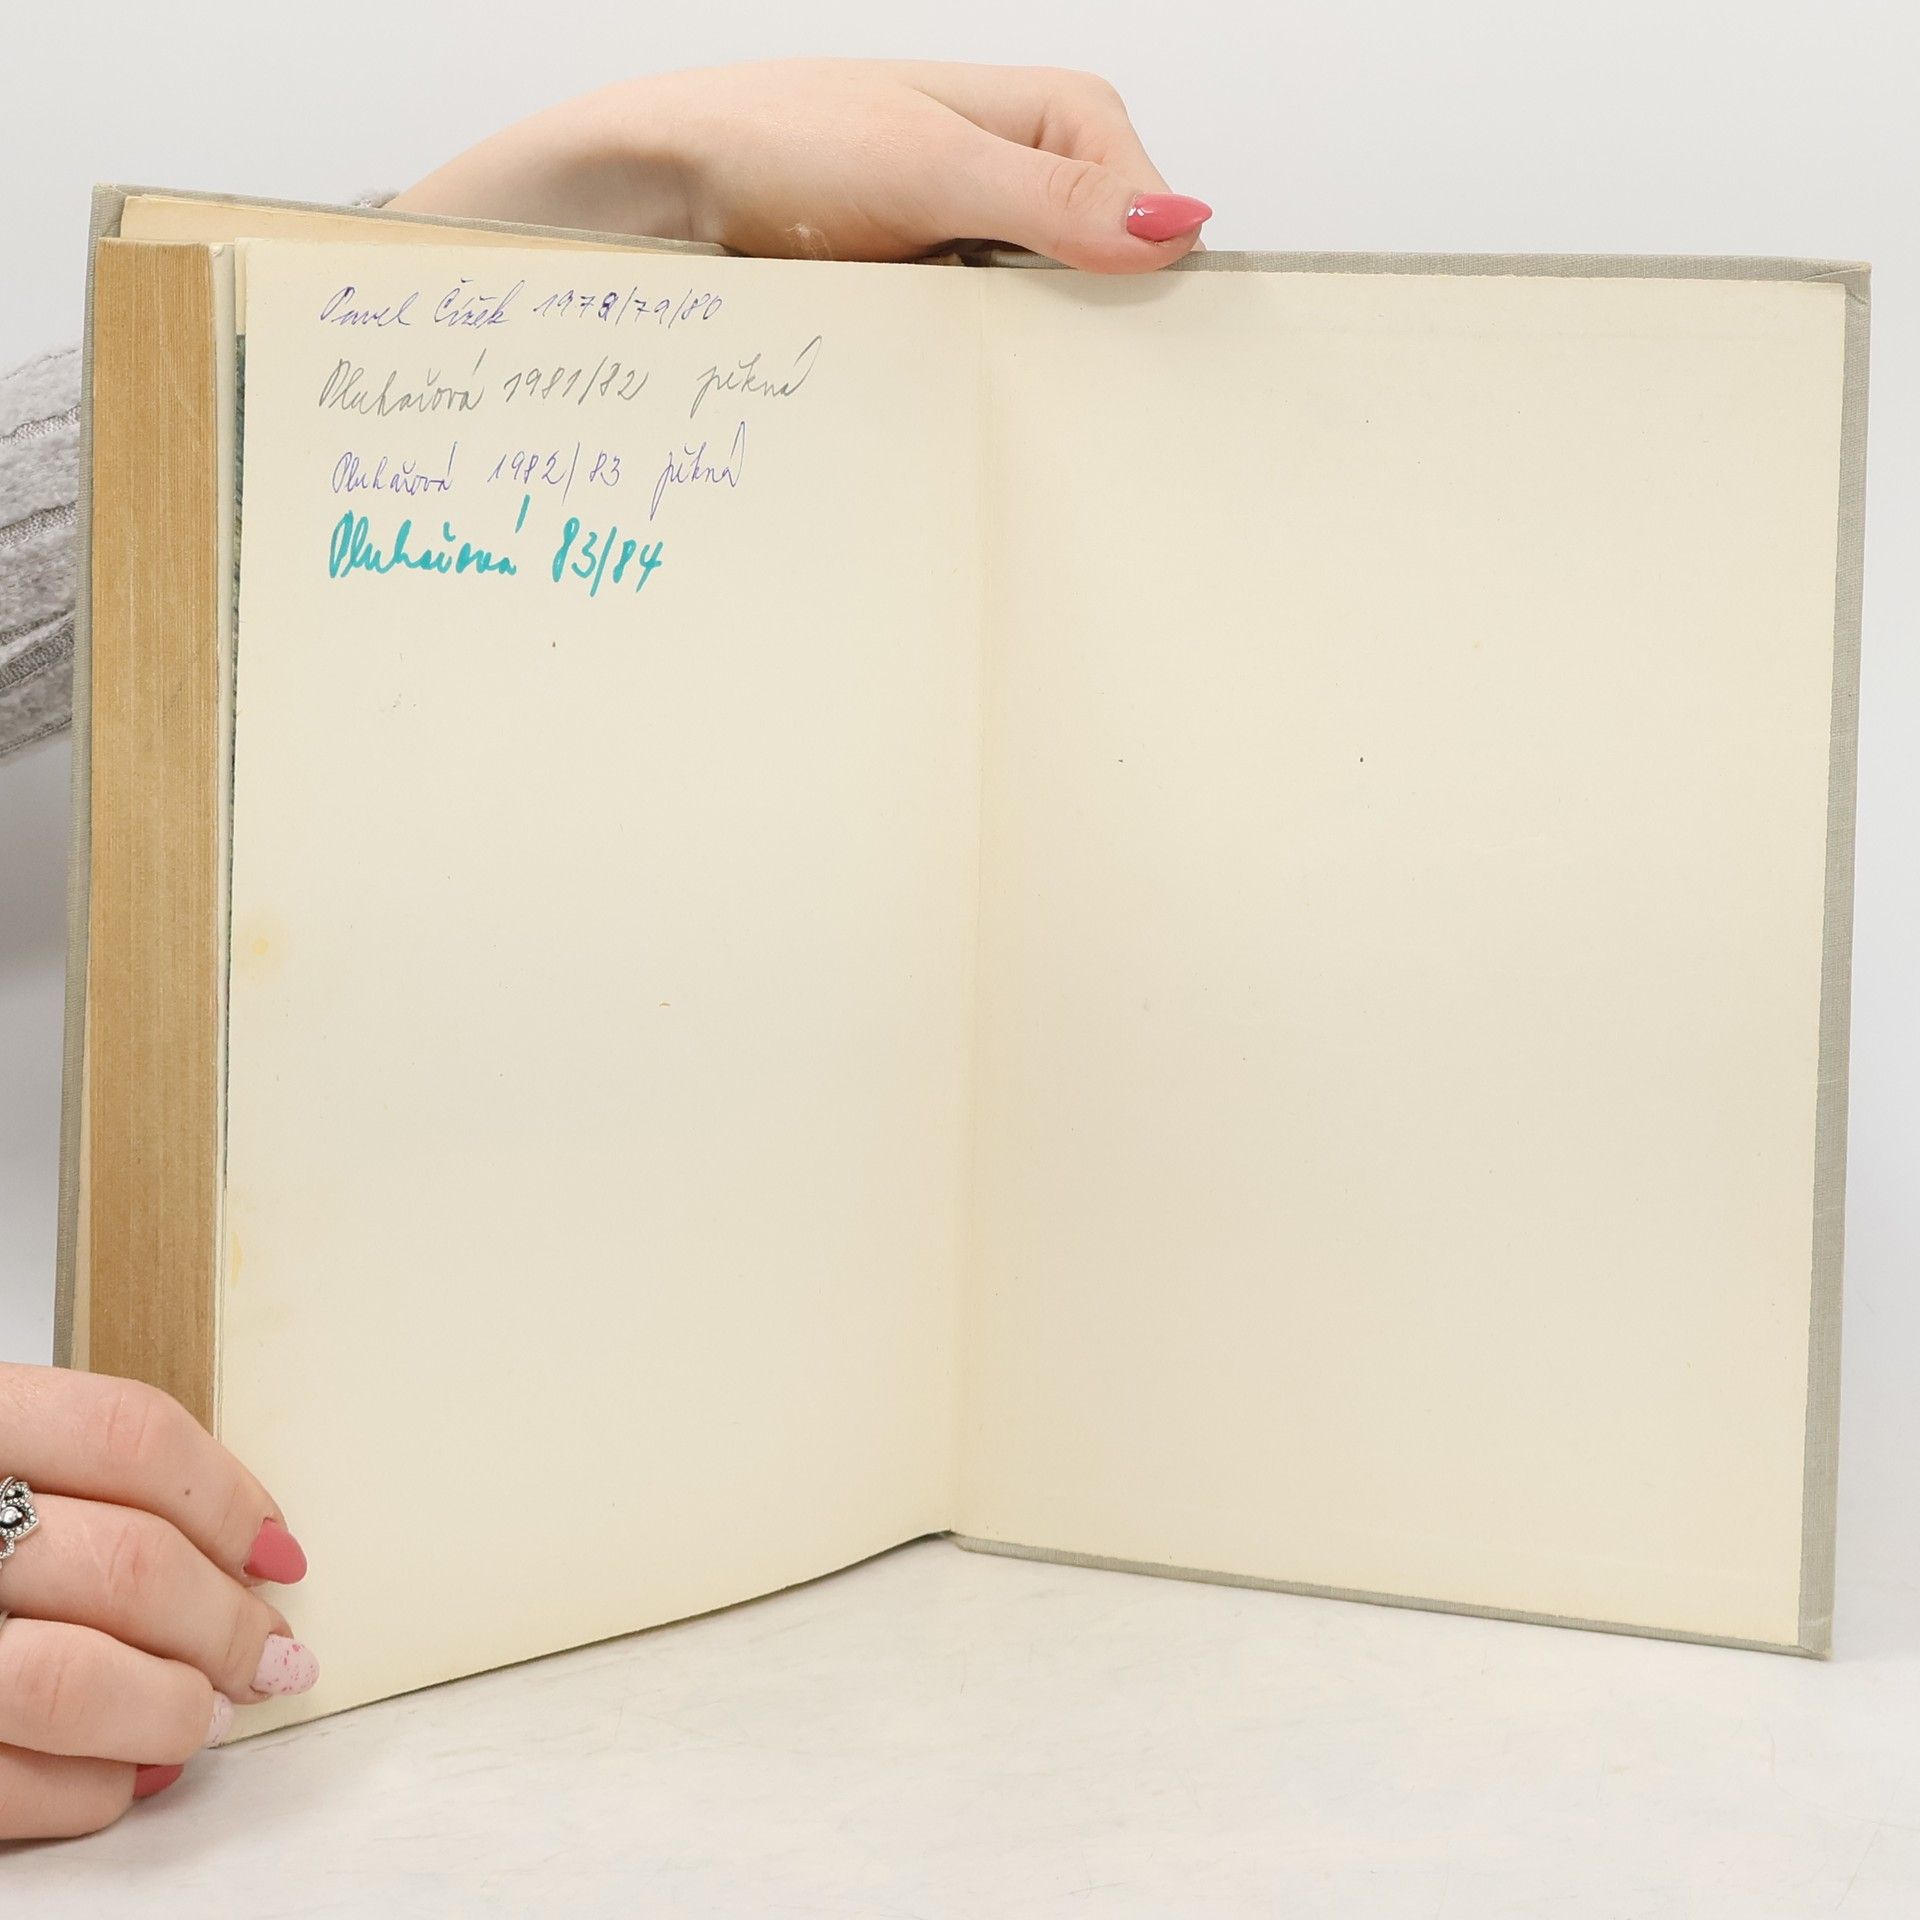 Pavel Čížek 1978/79/80
Pluhařová 1981/82 pěkná
Pluhařová 1982/83 pěkná
Pluhařová 83/84